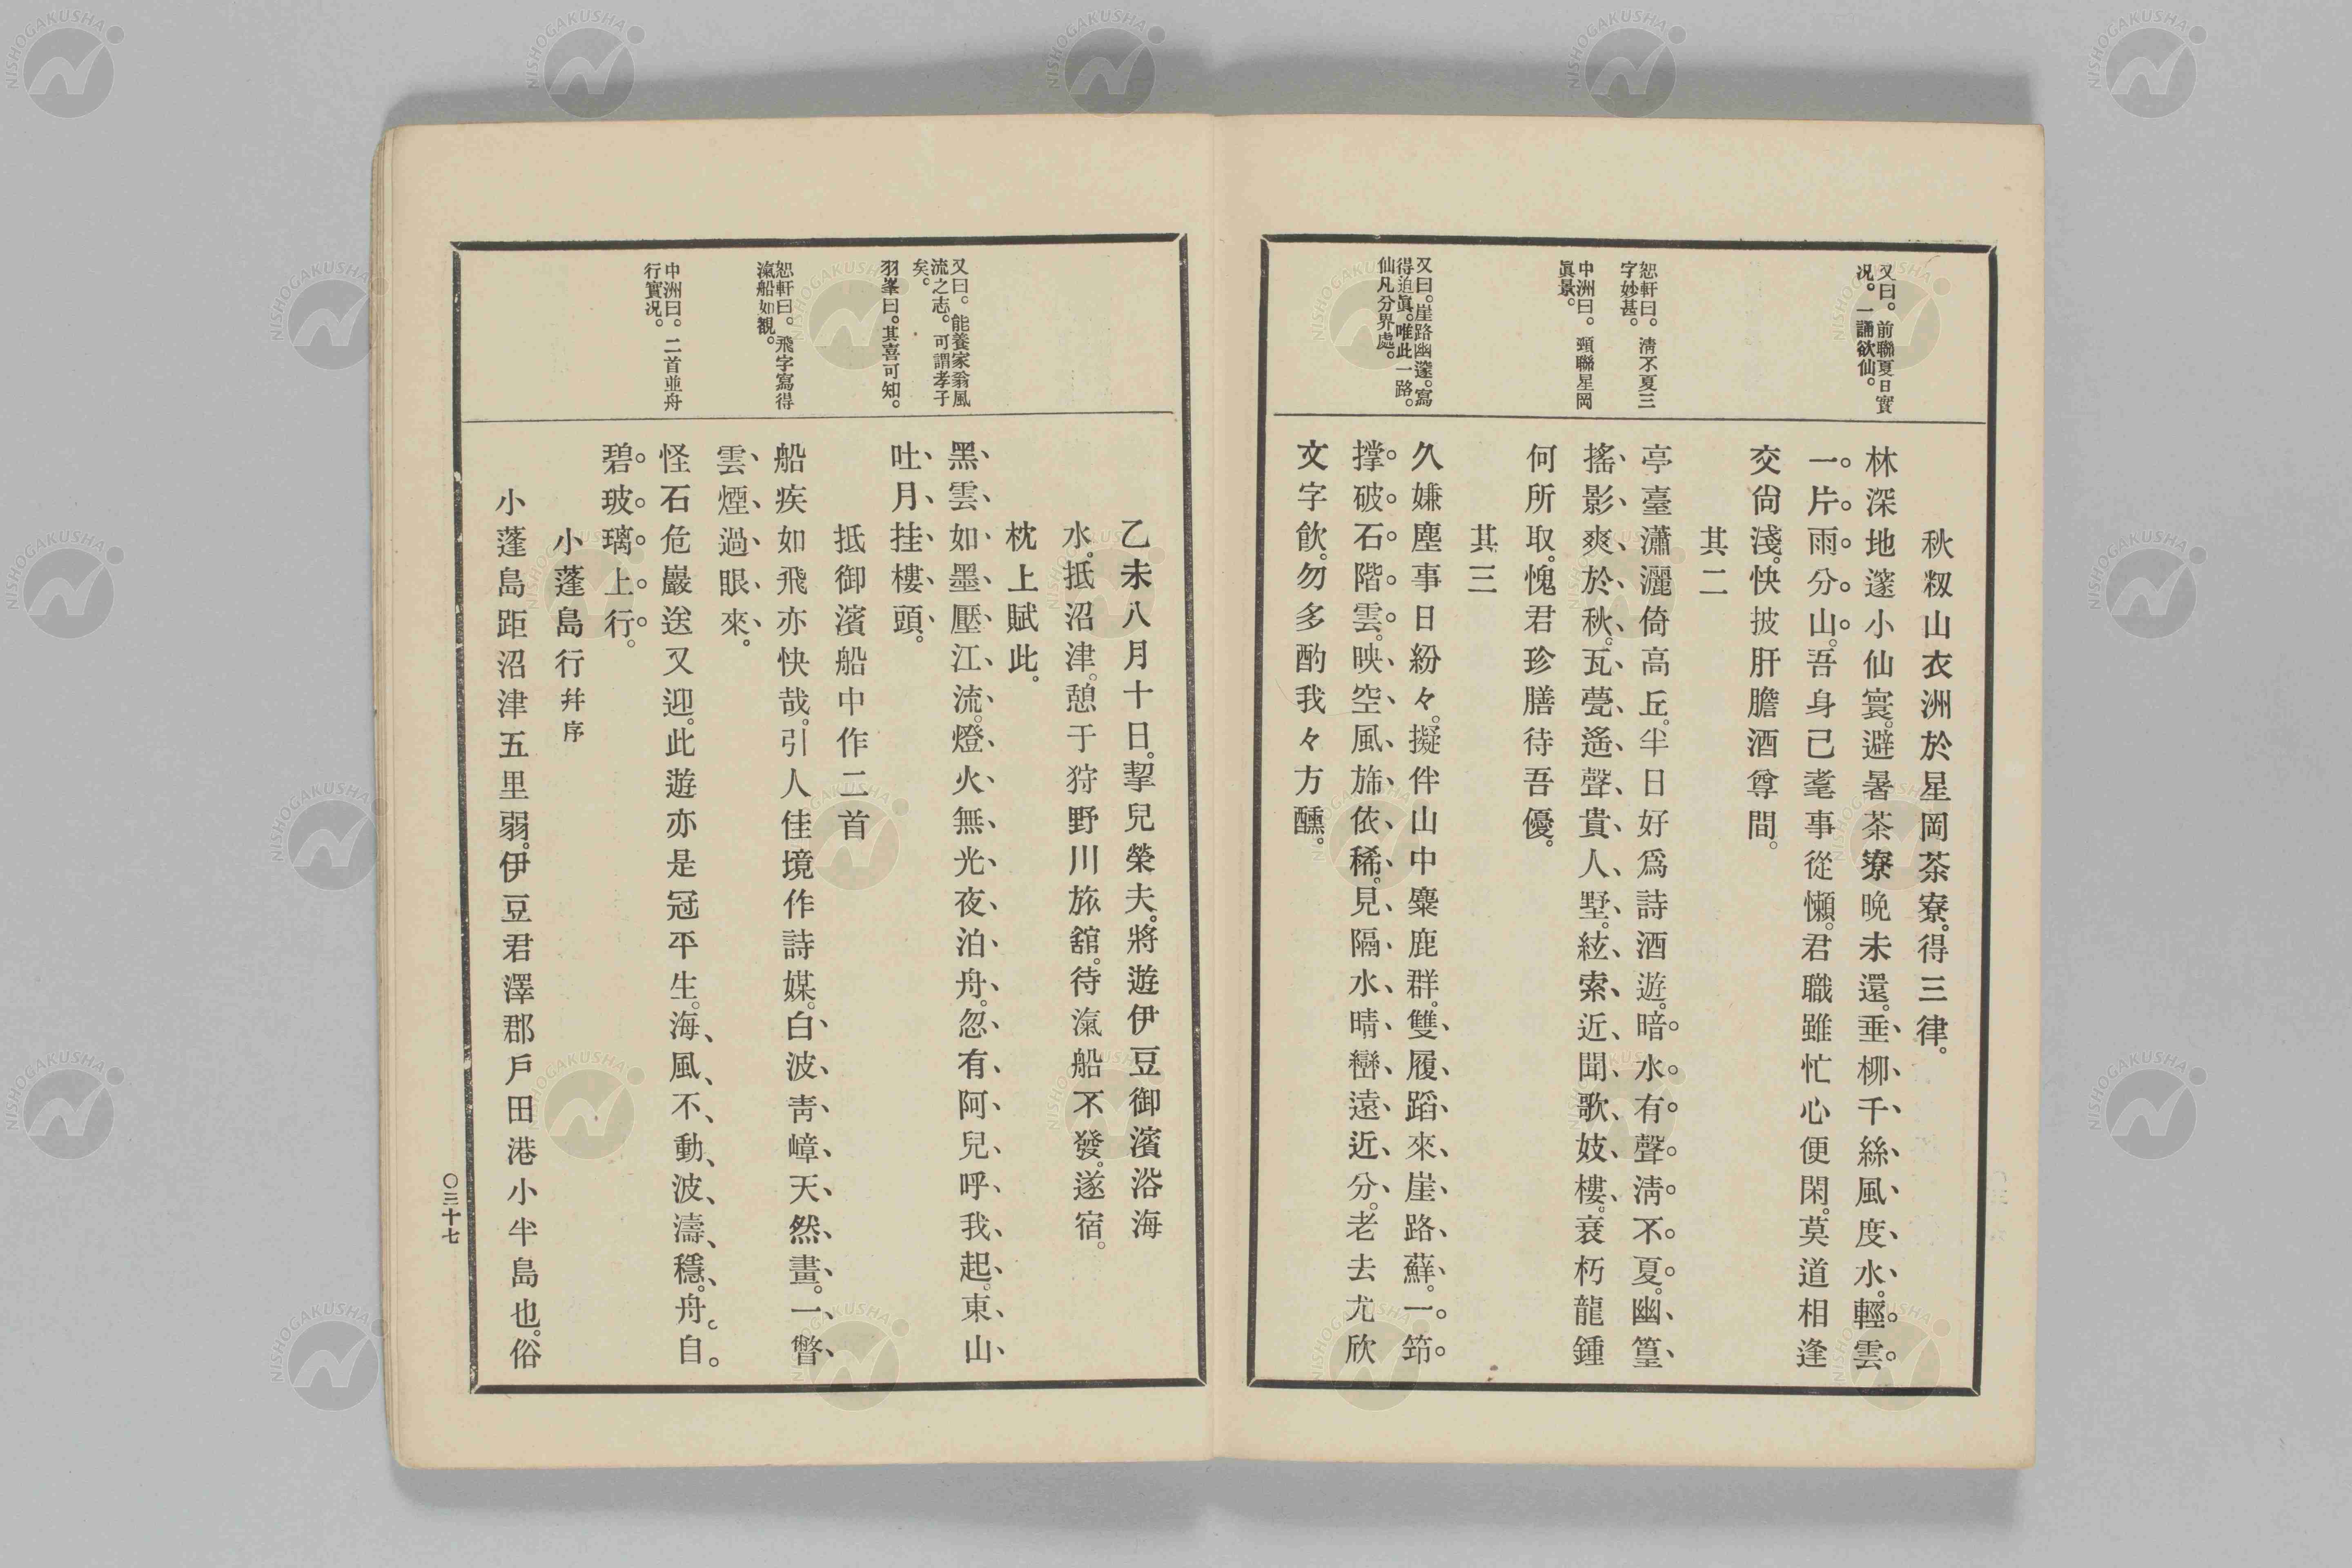 又曰。前聯夏日實
况。一誦欲仙。
恕軒曰。淸不夏三
字妙甚。
中洲曰。頸聯星岡
眞景。
又曰。崖路幽邃。寫
得迫眞。唯此一路。
仙凡分界處。
秋籾山衣洲於星岡茶寮。得三律。
林深地邃小仙寰。避暑茶寮晩未還。垂柳千絲風度水。輕雲
一片雨分山。吾身已耄事從懶。君職雖忙心便閑。莫道相逢
交尙淺。快披肝膽酒尊間。
其二
亭臺瀟灑倚高丘。半日好爲詩酒遊。暗水有聲淸不夏。幽篁
搖影爽於秋。瓦甍遙聳貴人墅。絃索近聞歌妓樓。衰朽龍鍾
何所取。愧君珍膳待吾優。
其三
久嫌塵事日紛々。擬伴山中麋鹿群。雙履蹈來崖路蘚。一筇
撑破石階雲。映空風旆依稀見。隔水晴巒遠近分。老去尤欣
文字飮。勿多酌我々方醺。
又曰。能養家翁風
流之志。可謂孝子
矣。
羽峯曰。其喜可知。
恕軒曰。飛字寫得
滊船如観。
中洲曰。二首並舟
行實况。
乙未八月十日。挈兒榮夫。將遊伊豆御濱浴海
水。抵沼津。憩于狩野川旅舘。待滊船不發。遂宿。
枕上賦此。
黑雲如墨壓江流。燈火無光夜泊舟。忽有阿兒呼我起。東山
吐月挂樓頭。
抵御濱船中作二首
船疾如飛亦快哉。引人佳境作詩媒。白波靑嶂天然畫。一瞥
雲煙過眼來。
怪石危巖送又迎。此遊亦是冠平生。海風不動波濤穩。舟自
碧玻璃上行。
小蓬島行幷序
小蓬島距沼津五里弱。伊豆君澤郡戶田港小半島也。俗
〇三十七